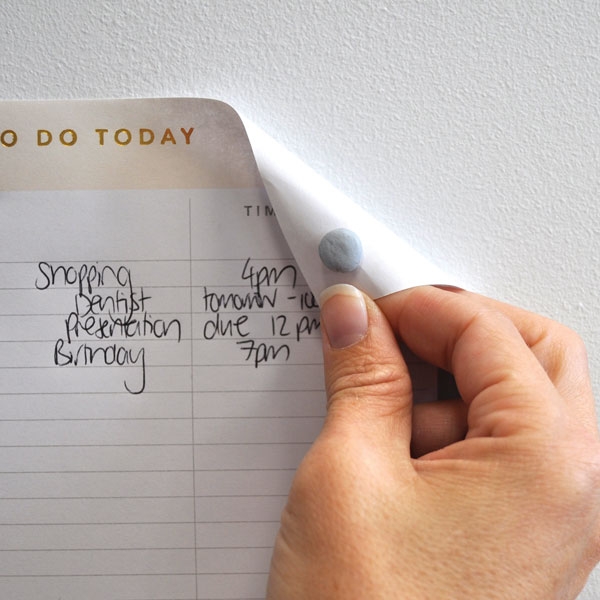 O DO TODAY
TIM
Shopping 4pm
Dentist tomorrow -
Presentation due 12 pm
Birthday 7pm